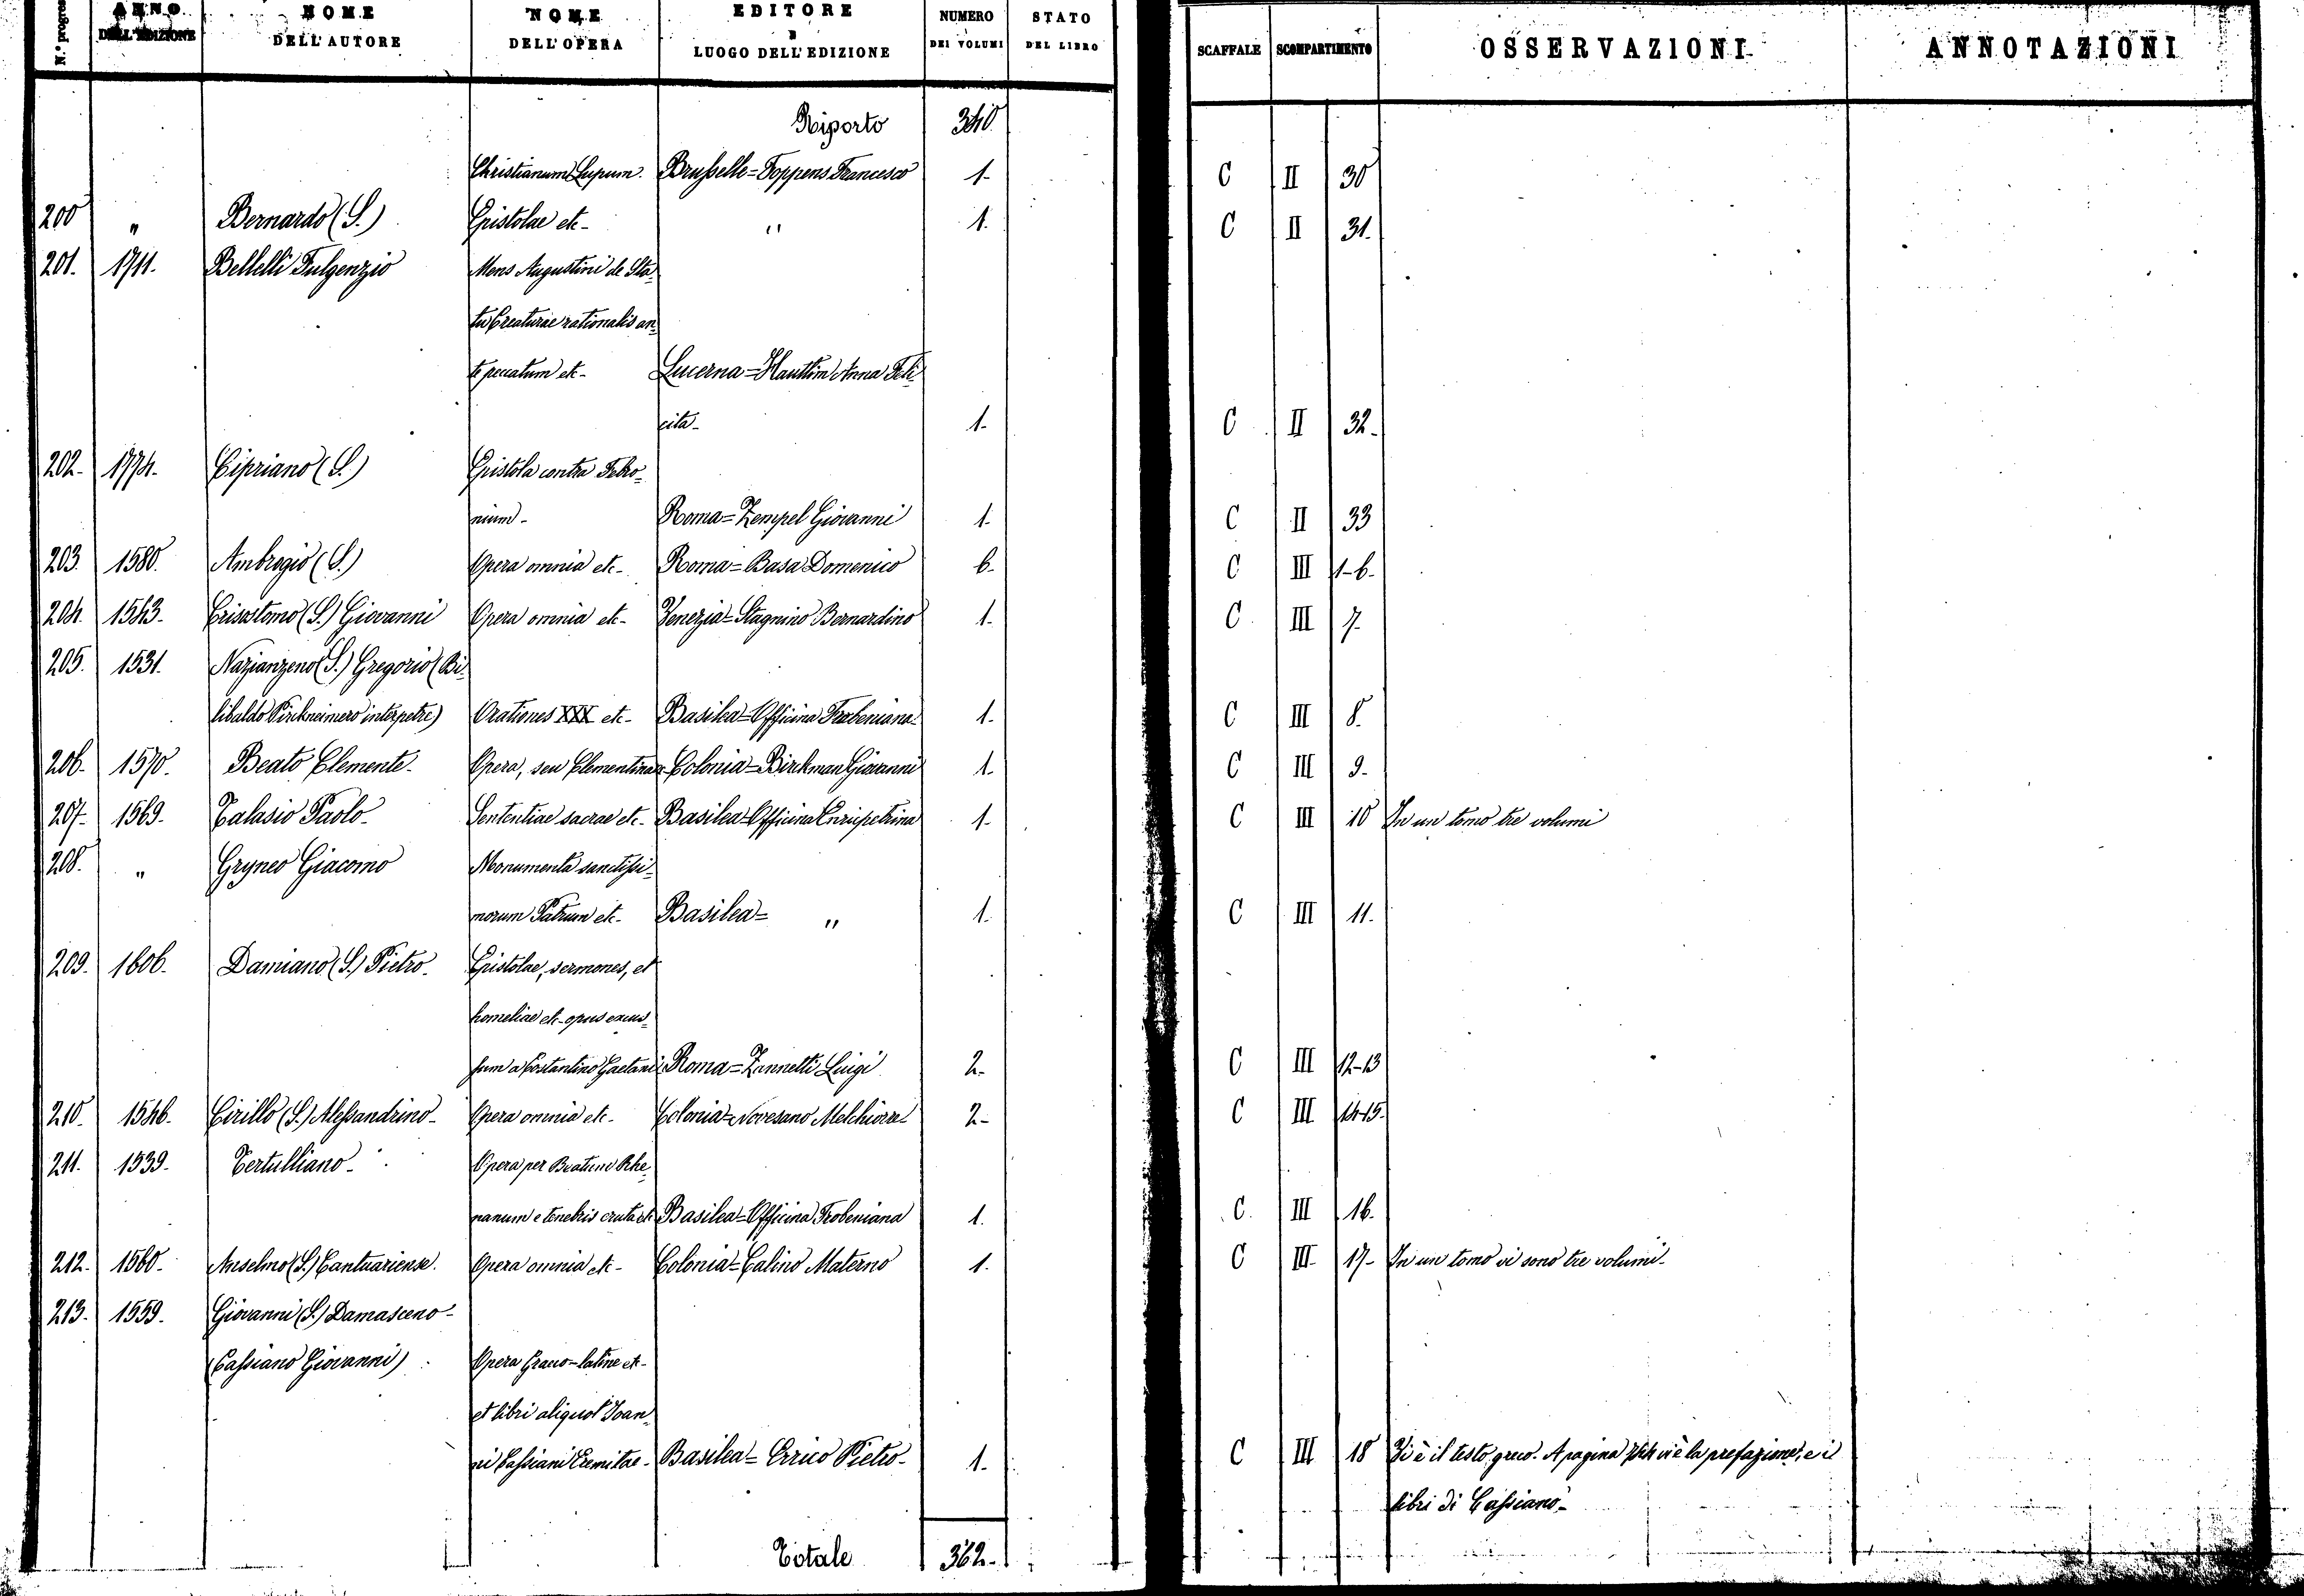 N.° progres
ANNO DELL'EDIZIONE
NOME DELL'AUTORE
NOME DELL'OPERA
EDITORE E LUOGO DELL'EDIZIONE
NUMERO DEI VOLUMI
STATO DEL LIBRO
SCAFFALE
SCOMPARTIMENTO
OSSERVAZIONI
ANNOTAZIONI
Riporto 340
Christianum Lupum. Brusselle = Foppens Francesco 1- C II 30
200 " Bernardo (S.) Epistolae etc- " 1. C II 31.
201. 1711. Bellelli Fulgenzio Mens Augustini de Sta-
tu Creaturae rationalis an-
te peccatum etc- Lucerna = Hauttin Anna Feli-
cita- 1- C II 32-
202- 1774. Cipriano (S.) Epistola contra Febro-
nium- Roma = Zempel Giovanni 1- C II 33
203. 1580. Ambrogio (S.) Opera omnia etc- Roma = Basa Domenico 6- C III 1-6-
204. 1543- Crisostomo (S.) Giovanni Opera omnia etc- Venezia = Stagnino Bernardino 1- C III 7-
205. 1531. Nazianzeno (S.) Gregorio (Bi-
libaldo Pirkneimero interpetre) Orationes XXX etc- Basilea = Officina Frobeniana 1- C III 8.
206- 1570. Beato Clemente- Opera, seu Clementina Colonia = Birkman Giovanni 1- C III 9-
207- 1569- Talasio Paolo- Sententiae sacrae etc- Basilea = Officina Enripetrina 1- C III 10 In un tomo tre volumi
208. " Gryneo Giacomo Monumenta sanctissi-
morum Patrum etc- Basilea = " 1- C III 11.
209. 1606. Damiano (S.) Pietro- Epistolae, sermones, et
homeliae etc- opus excus-
sum a Costantino Gaetani Roma = Zannetti Luigi 2- C III 12-13
210. 1546. Cirillo (S.) Alessandrino- Opera omnia etc- Colonia = Novesano Melchiorre 2- C III 14-15.
211. 1539- Tertulliano- Opera per Beatum Rhe-
nanum e tenebris eruta etc Basilea = Officina Frobeniana 1. C III 16.
212. 1560- Anselmo (S.) Cantuariense. Opera omnia etc- Colonia = Calino Materno 1. C III- 17- In un tomo vi sono tre volumi-
213- 1559- Giovanni (S.) Damasceno-
(Cassiano Giovanni) Opera Graeco-latine etc-
et libri aliquot Joan-
ni Cassiani Eremitae- Basilea = Errico Pietro- 1. C III 18 Vi è il testo greco. A pagina vi è la prefazione, e i
libri di Cassiano-
Totale 362-